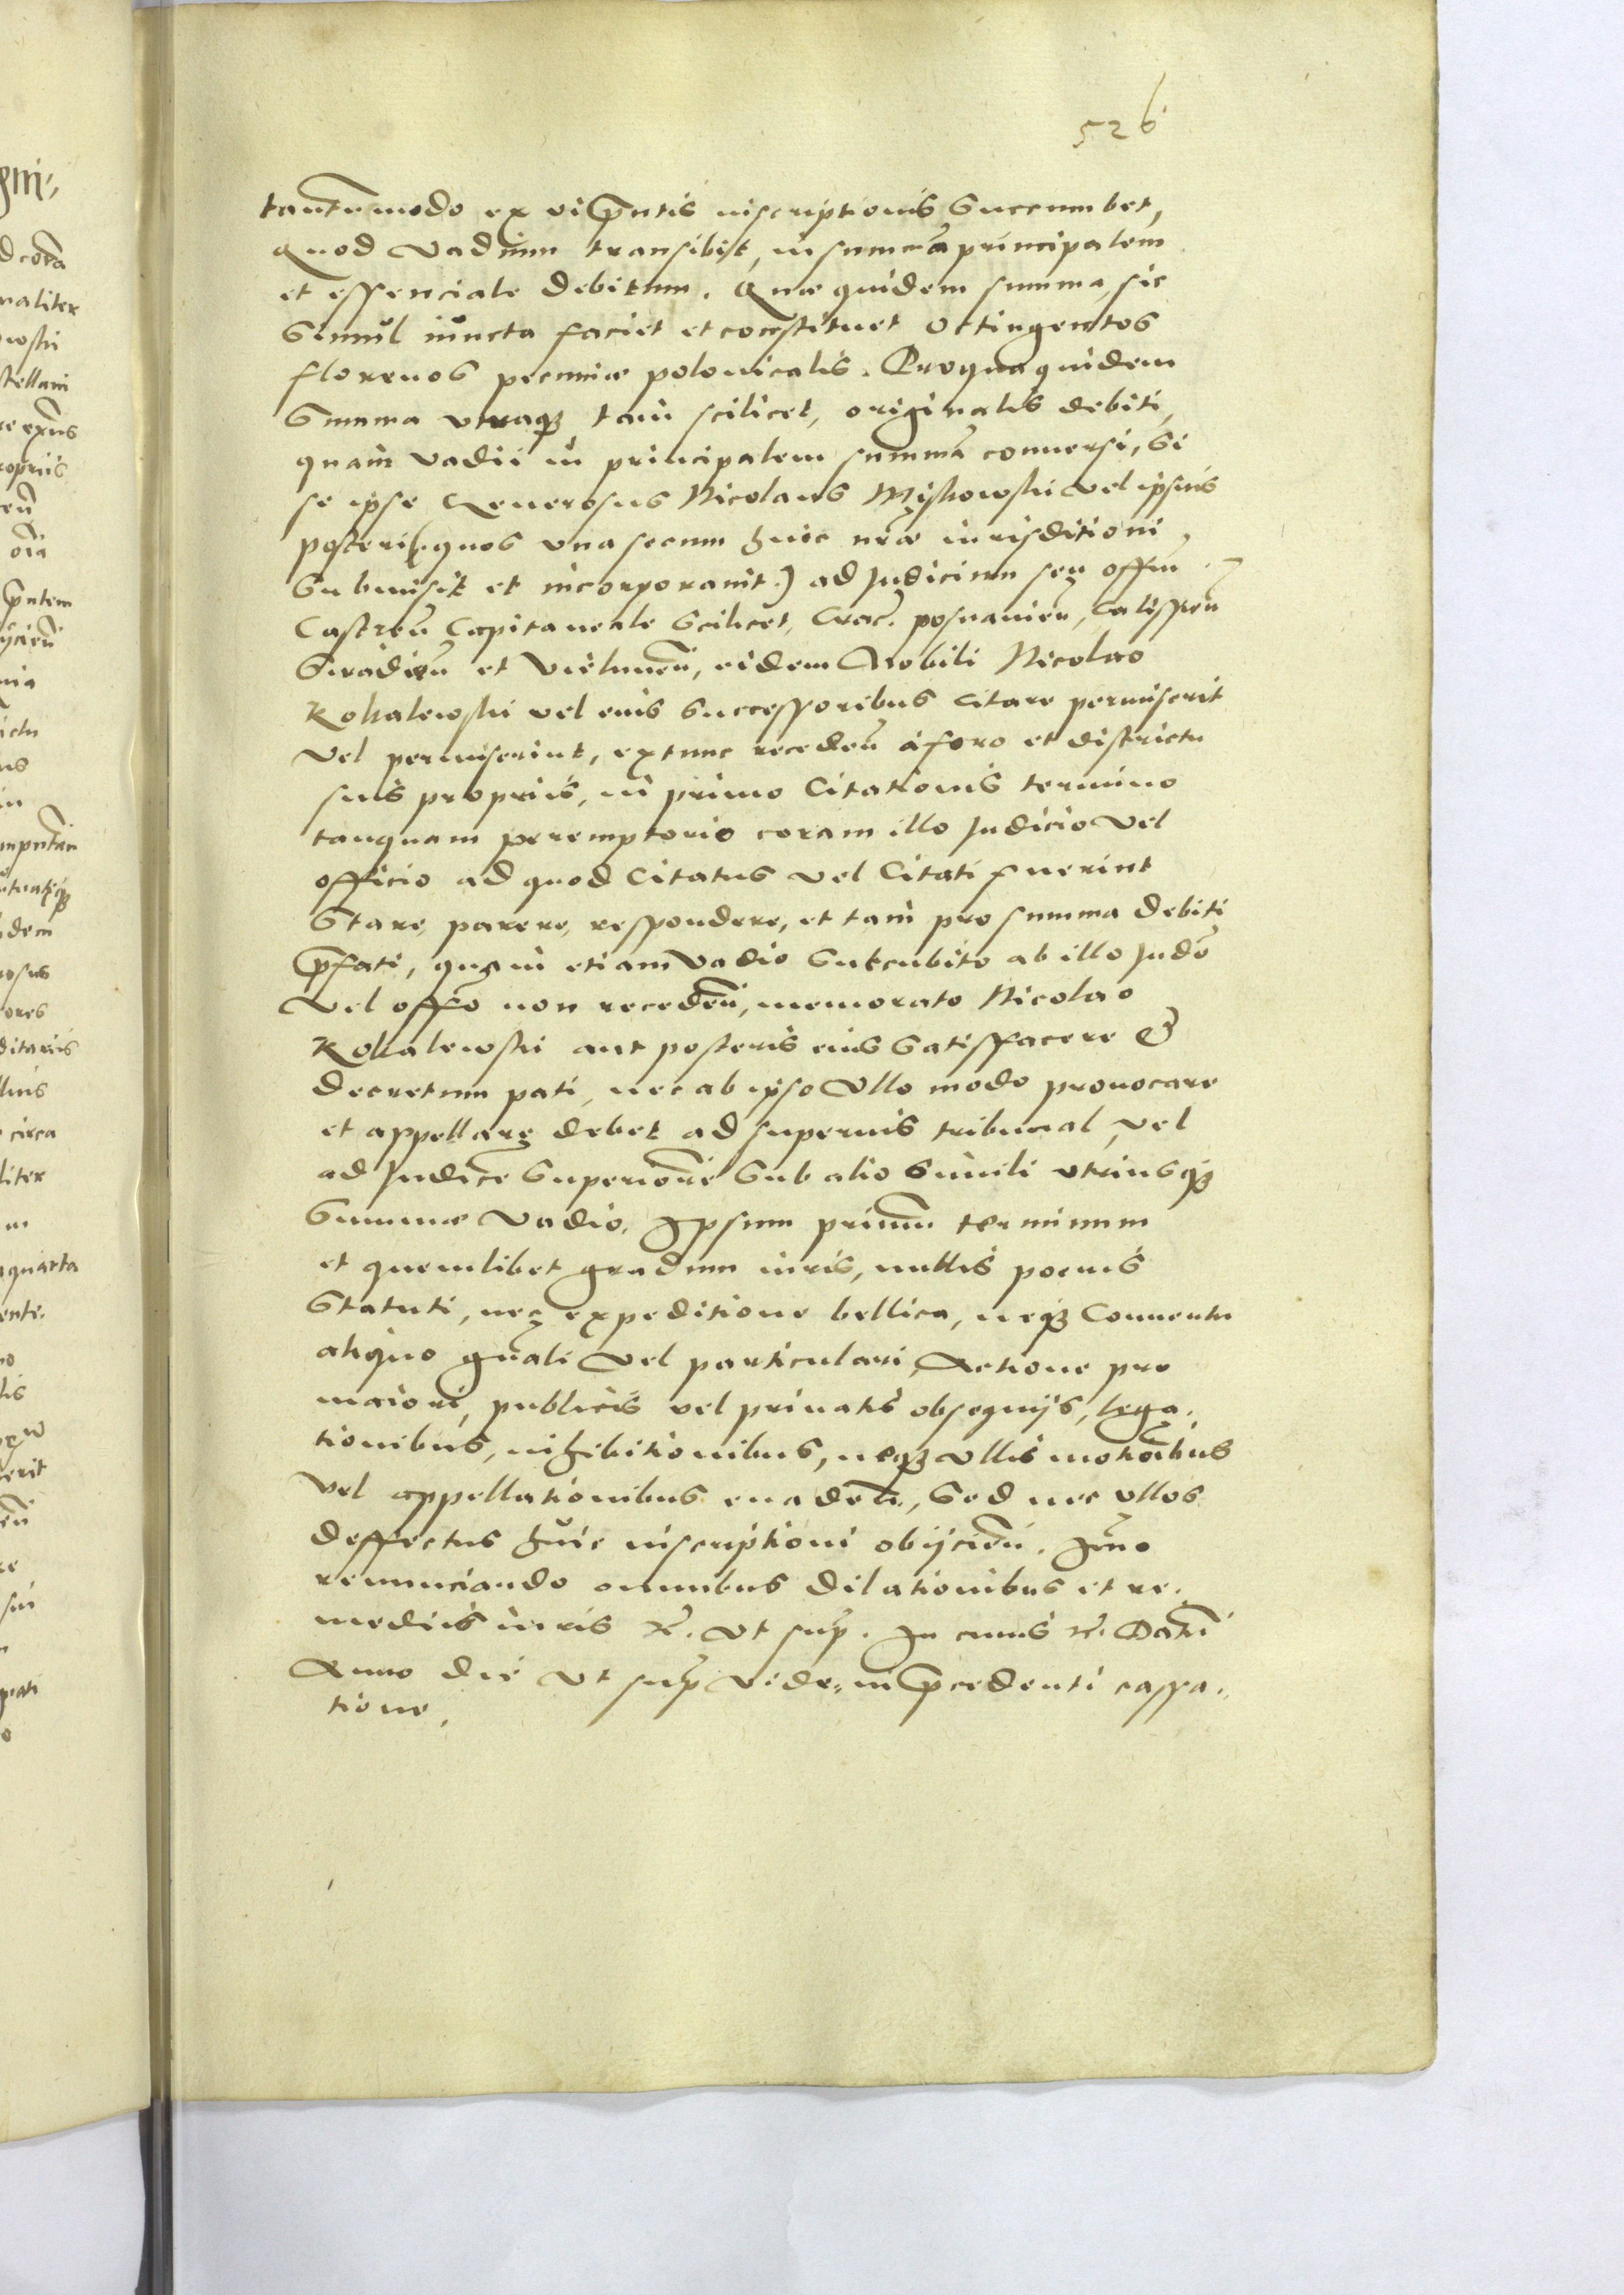 526
tantūmodo ex vi p̄ntis inscriptionis Succumbet,
Quod Vadium transibit, in summā principalem
et essenciale debitum. Quæ quidem summa, sic
Simul iuncta faciet et constituet Octingentos
florenos pecuniæ polonicalis. Pro qua quidem
Summa vtraq3 tam scilicet, originalis debiti,
quam Vadii in principalem summā conuersi, Si
se ipse Generosus Nicolaus Myskowski vel ipsius
posteri (quos vna secum huic nr̄æ iurisditioni
Submisit et incorporauit.) ad Judicium seu offm̄
Castreñ Capitaneale Scilicet, Crac. posnanieñ, Calissieñ
Siradieñ et Vieluneñ, eidem Nobili Nicolao
Kokalewski vel eius Successoribus Citare permiserit
Vel permiserint, extunc recedeñ á foro et districtu
suis propriis, in primo Citationis termino
tanquam peremptorio coram illo Judicio Vel
officio ad quod Citatus vel Citati fuerint
Stare, parere, respondere, et tam pro summa debiti
p̄fati, quam etiam Vadio Succubito ab illo Judō
Vel offō non recedeñ, memorato Nicolao
Kokalewski aut posteris eius Satisffacere &
decretum pati, nec ab ipso Vllo modo prouocare
et appellare debet ad superius tribunal, vel
ad Judicē Superiorē Sub alio Simili vtriusq3
Summæ Vadio. Ipsum primū terminum
et quemlibet gradum iuris, nullis poenis
Statuti, nec expeditione bellica, neq3 Conuentu
aliquo gn̄ali Vel particulari, Actione pro
maiori, publicis vel priuatis obsequijs, lega.
tionibus, inhibitionibus, neq3 vllis motiōibus
Vel appellationibus euadeñ, Sed nec vllos
deffectus huic inscriptioni obijcieñ. Imo
renunciando omnibus dilationibus et re.
mediis iuris &. Vt sup. In cuius &. Datū
Anno die Vt sup Vide in p̄cedenti cassa.
tione.